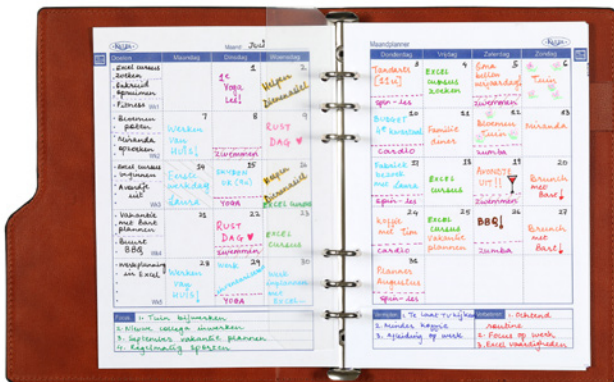 Kalpa
Maand: Juli
Doelen Maandag Dinsdag Woensdag
1 2
Excel cursus
zoeken
onkruid
opruimen
Fitness
Wk1
1e
Yoga
les!
Helpen
Dierenasiel
7 8 9
Bloemen
poten
Miranda
opzoeken
Wk2
Werken
van
HUIS!
zwemmen
RUST
DAG ♥
14 15 16
Excel cursus
beginnen
Avondje
uit
Wk3
Eerste
werkdag
Laura
YOGA
Helpen
Dierenasiel
EXCEL cursus
21 22 23
Vakantie
met Bart
plannen
Buurt
BBQ
Wk4
RUST
DAG ♥
zwemmen
EXCEL
CURSUS
28 29 30
werkplanning
in Excel
Wk5
Werken
van
HUIS!
Werk
YOGA
Werk
inplannen
met
EXCEL
Focus 1. Tuin bijwerken
2. Nieuwe collega inwerken
3. September vakantie plannen
4. Regelmatig sporten
Maandplanner
Kalpa
Donderdag Vrijdag Zaterdag Zondag
3 4 5 6
Tandarts
[11u]
spin-les
EXCEL
cursus
zoeken
Oma
bellen
verjaardag!
zwemmen
Tuin
10 11 12 13
BUDGET
4e kwartaal
cardio
Familie
diner
Bloemen
Tuin
zumba
Miranda
17 18 19 20
Fabriek
bezoek
met Laura
spin-les
EXCEL
cursus
AVONDJE
UIT!!
zwemmen
Brunch
met
Bart!
24 25 26 27
koffie
met Tim
cardio
EXCEL
CURSUS
Vakantie
plannen
BBQ!
zumba
Brunch
met
Bart!
31
Planner
Augustus
spin-les
Vermijden 1. Te laat TV kijken
2. Minder koffie
3. Afleiding op werk
Verbeteren 1. Ochtend
routine
2. Focus op werk
3. Excel vaardigheden